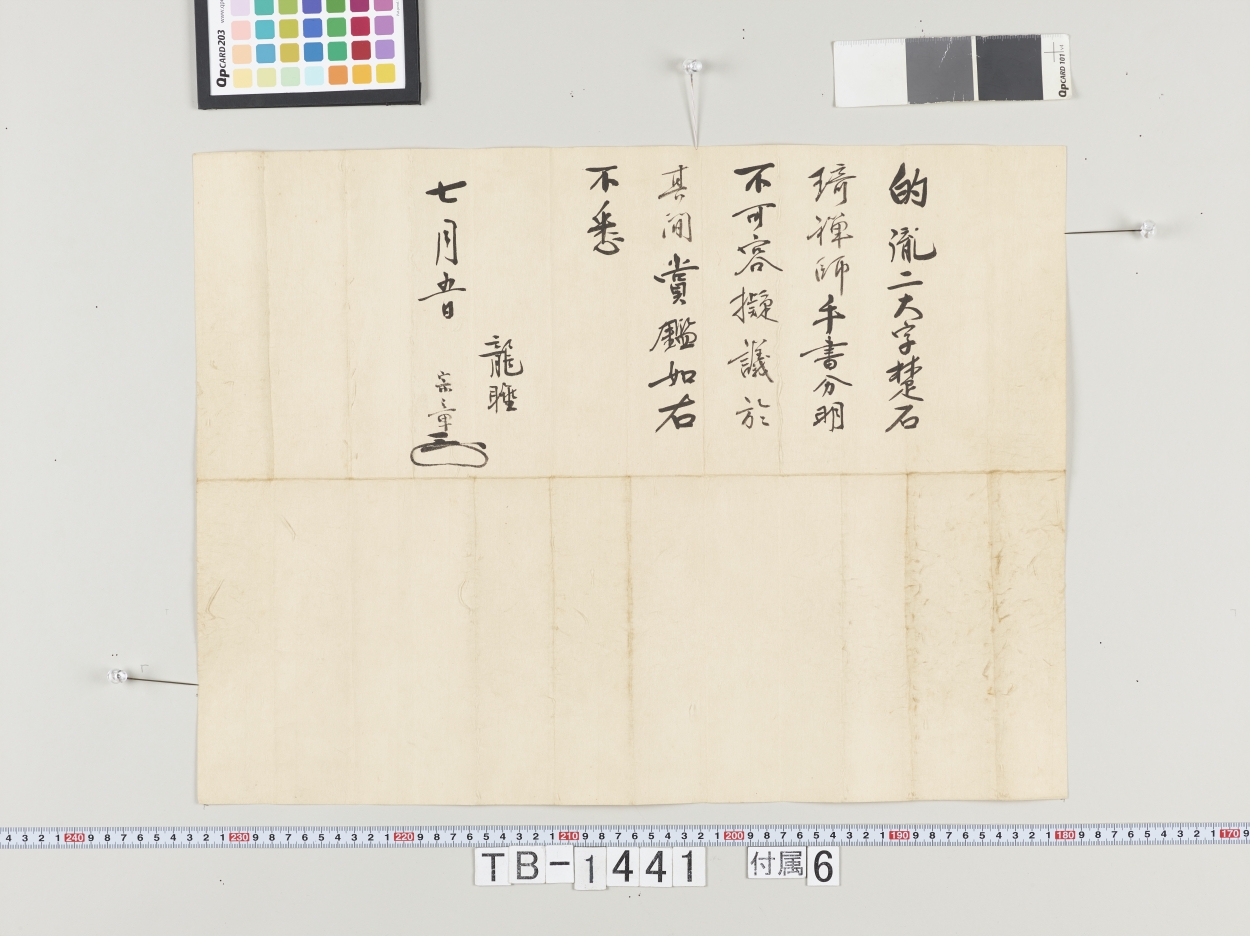 的胤二大字楚石
琦禅師手書分明
不可容擬議於
其間賞鑑如右
不悉
七月五日
龍睡
宗章
QpCARD 203
QpCARD 101 v4
4 3 2 1 240 9 8 7 6 5 4 3 2 1 230 9 8 7 6 5 4 3 2 1 220 9 8 7 6 5 4 3 2 1 210 9 8 7 6 5 4 3 2 1 200 9 8 7 6 5 4 3 2 1 190 9 8 7 6 5 4 3 2 1 180 9 8 7 6 5 4 3 2 1 170 9
TB-1441 付属6